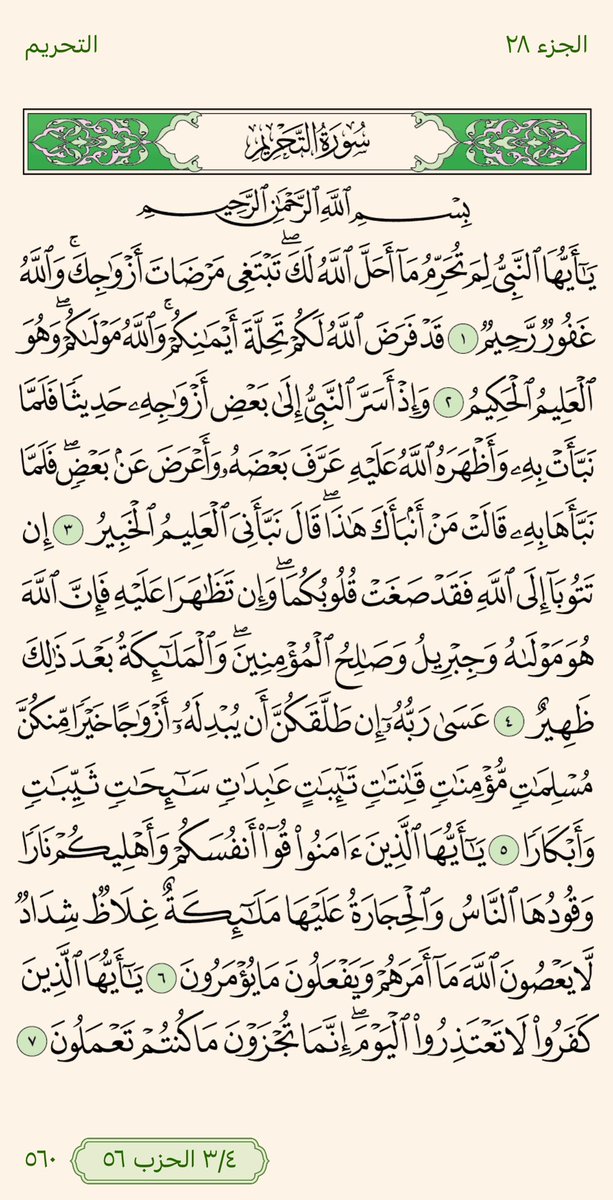 الجزء ٢٨
التحريم
سُورَةُ التَّحْرِيمِ
بِسْمِ ٱللَّهِ ٱلرَّحْمَٰنِ ٱلرَّحِيمِ
يَٰٓأَيُّهَا ٱلنَّبِىُّ لِمَ تُحَرِّمُ مَآ أَحَلَّ ٱللَّهُ لَكَۖ تَبْتَغِى مَرْضَاتَ أَزْوَٰجِكَۚ وَٱللَّهُ
غَفُورٌ رَّحِيمٌ ١ قَدْ فَرَضَ ٱللَّهُ لَكُمْ تَحِلَّةَ أَيْمَٰنِكُمْۚ وَٱللَّهُ مَوْلَىٰكُمْۖ وَهُوَ
ٱلْعَلِيمُ ٱلْحَكِيمُ ٢ وَإِذْ أَسَرَّ ٱلنَّبِىُّ إِلَىٰ بَعْضِ أَزْوَٰجِهِۦ حَدِيثًا فَلَمَّا
نَبَّأَتْ بِهِۦ وَأَظْهَرَهُ ٱللَّهُ عَلَيْهِ عَرَّفَ بَعْضَهُۥ وَأَعْرَضَ عَنۢ بَعْضٍۖ فَلَمَّا
نَبَّأَهَا بِهِۦ قَالَتْ مَنْ أَنۢبَأَكَ هَٰذَاۖ قَالَ نَبَّأَنِىَ ٱلْعَلِيمُ ٱلْخَبِيرُ ٣ إِن
تَتُوبَآ إِلَى ٱللَّهِ فَقَدْ صَغَتْ قُلُوبُكُمَاۖ وَإِن تَظَٰهَرَا عَلَيْهِ فَإِنَّ ٱللَّهَ
هُوَ مَوْلَىٰهُ وَجِبْرِيلُ وَصَٰلِحُ ٱلْمُؤْمِنِينَۖ وَٱلْمَلَٰٓئِكَةُ بَعْدَ ذَٰلِكَ
ظَهِيرٌ ٤ عَسَىٰ رَبُّهُۥٓ إِن طَلَّقَكُنَّ أَن يُبْدِلَهُۥٓ أَزْوَٰجًا خَيْرًا مِّنكُنَّ
مُسْلِمَٰتٍ مُّؤْمِنَٰتٍ قَٰنِتَٰتٍ تَٰٓئِبَٰتٍ عَٰبِدَٰتٍ سَٰٓئِحَٰتٍ ثَيِّبَٰتٍ
وَأَبْكَارًا ٥ يَٰٓأَيُّهَا ٱلَّذِينَ ءَامَنُوا۟ قُوٓا۟ أَنفُسَكُمْ وَأَهْلِيكُمْ نَارًا
وَقُودُهَا ٱلنَّاسُ وَٱلْحِجَارَةُ عَلَيْهَا مَلَٰٓئِكَةٌ غِلَاظٌ شِدَادٌ
لَّا يَعْصُونَ ٱللَّهَ مَآ أَمَرَهُمْ وَيَفْعَلُونَ مَا يُؤْمَرُونَ ٦ يَٰٓأَيُّهَا ٱلَّذِينَ
كَفَرُوا۟ لَا تَعْتَذِرُوا۟ ٱلْيَوْمَۖ إِنَّمَا تُجْزَوْنَ مَا كُنتُمْ تَعْمَلُونَ ٧
٣/٤ الحزب ٥٦
٥٦٠